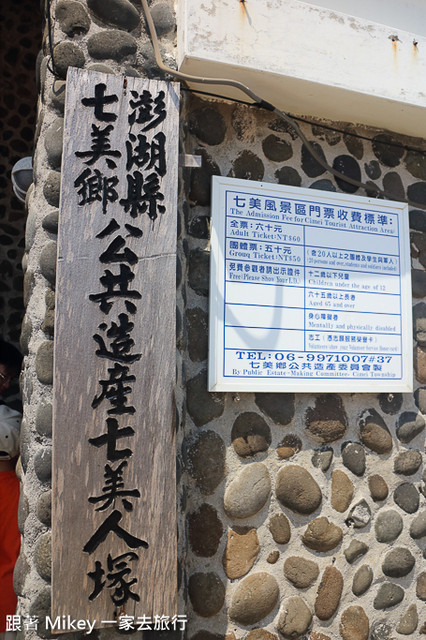 澎湖縣
七美鄉
公共造產七美人塚
七美風景區門票收費標準：
The Admission Fee for Cimei Tourist Attraction Area
全票：六十元
Adult Ticket:NT$60
團體票：五十元
Group Ticket:NT$50
(老20人以上之團體及學生與軍人)
免費參觀者請出示證件
Free(Please Show Your I.D.)
十二歲以下兒童
Children under the age of 12
六十五歲以上長者
Aged 65 and over
身心障礙者
Mentally and physically disabled
志工（憑志願服務榮譽卡）
TEL:06-9971007#37
七美鄉公共造產委員會
By Public Estate-Making Committee, Cimei Township
跟著 Mikey 一家去旅行